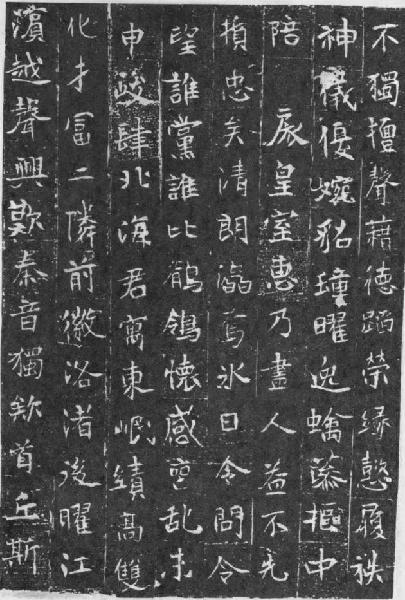 不獨擅聲藉德蹈榮緣懿履袟
神儀優婉貂璫曜迩蟬藻樞中
陪扆皇室惠乃盡人益不先
損忠矣清朗瀛焉氷日令問令
望誰黨誰比鶺鴒懷感喪乱未
申峻肆北海君寓東岷績高雙
化才冨二隣前徽洛渚後曜江
濱越聲興歎秦音獨欸首丘斯